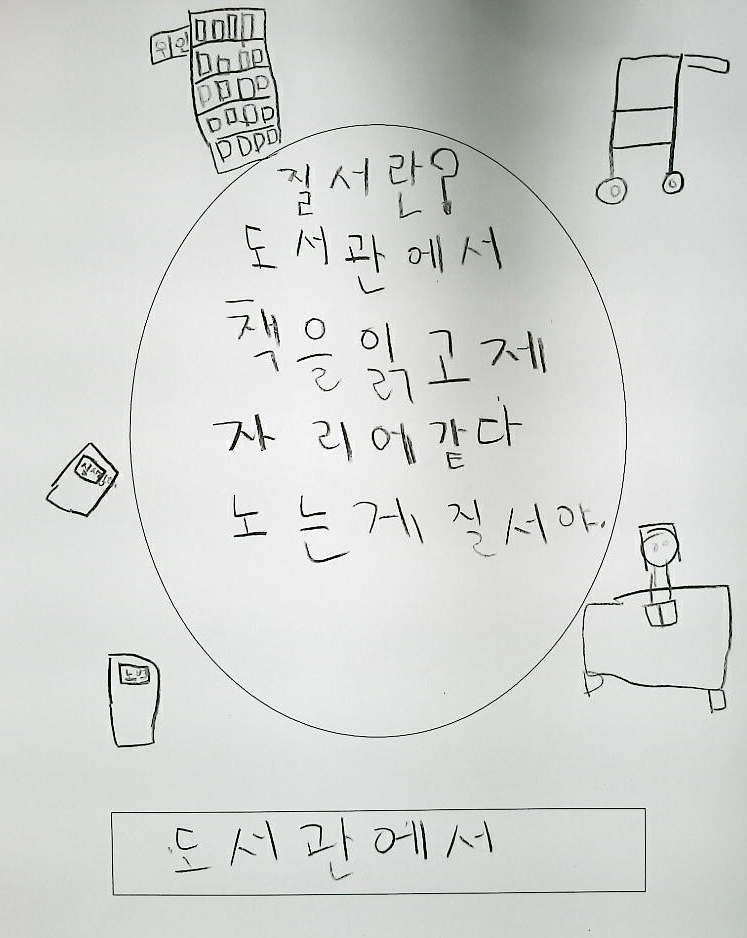 위인
질서란?
도서관에서
책을 읽고 제
자리에 같다
노는게 질서야.
도서관에서